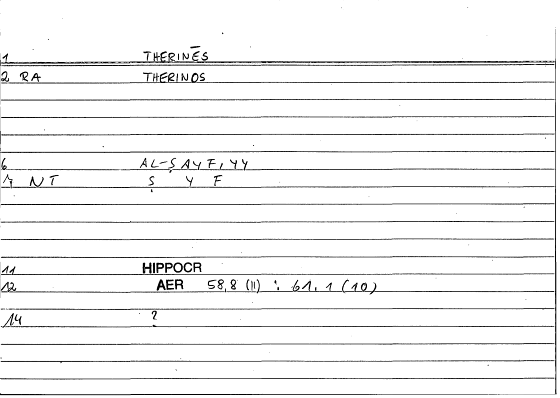 1 THERINĒS
2 RA THERINOS
6 AL-ṢAYFIYY
7 NT Ṣ Y F
11 HIPPOCR
12 AER 58,8 (11) : 61,1 (10)
14 ?